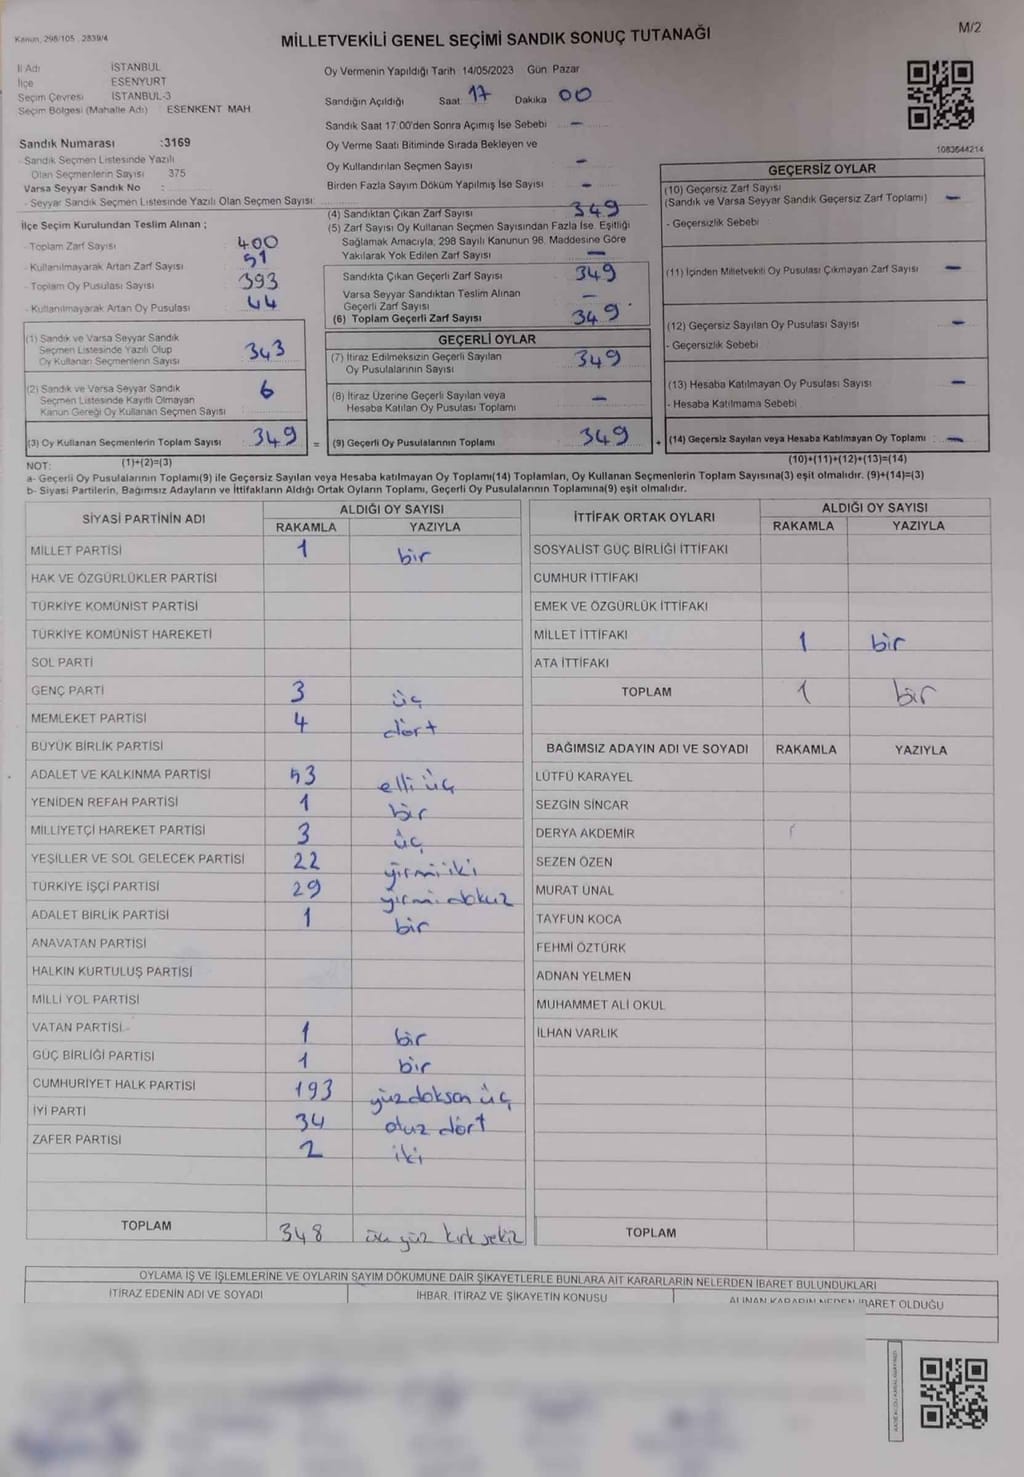 Kanun, 298/105 . 2839/4
MİLLETVEKİLİ GENEL SEÇİMİ SANDIK SONUÇ TUTANAĞI
M/2
İl Adı İSTANBUL
İlçe ESENYURT
Seçim Çevresi İSTANBUL-3
Seçim Bölgesi (Mahalle Adı) ESENKENT MAH.
Oy Vermenin Yapıldığı Tarih 14/05/2023 Gün Pazar
Sandığın Açıldığı Saat 17 Dakika 00
Sandık Saat 17:00'den Sonra Açımış İse Sebebi –
Oy Verme Saati Bitiminde Sırada Bekleyen ve
Oy Kullandırılan Seçmen Sayısı –
Birden Fazla Sayım Döküm Yapılmış İse Sayısı –
1083644214
Sandık Numarası :3169
- Sandık Seçmen Listesinde Yazılı
Olan Seçmenlerin Sayısı 375
Varsa Seyyar Sandık No :
- Seyyar Sandık Seçmen Listesinde Yazılı Olan Seçmen Sayısı:
İlçe Seçim Kurulundan Teslim Alınan ;
- Toplam Zarf Sayısı 400
- Kullanılmayarak Artan Zarf Sayısı 51
- Toplam Oy Pusulası Sayısı 393
- Kullanılmayarak Artan Oy Pusulası 44
(1) Sandık ve Varsa Seyyar Sandık
Seçmen Listesinde Yazılı Olup
Oy Kullanan Seçmenlerin Sayısı 343
(2) Sandık ve Varsa Seyyar Sandık
Seçmen Listesinde Kayıtlı Olmayan
Kanun Gereği Oy Kullanan Seçmen Sayısı 6
(3) Oy Kullanan Seçmenlerin Toplam Sayısı 349 =
(1)+(2)=(3)
(4) Sandıktan Çıkan Zarf Sayısı 349
(5) Zarf Sayısı Oy Kullanan Seçmen Sayısından Fazla İse, Eşitliği
Sağlamak Amacıyla, 298 Sayılı Kanunun 98. Maddesine Göre
Yakılarak Yok Edilen Zarf Sayısı –
Sandıkta Çıkan Geçerli Zarf Sayısı 349
Varsa Seyyar Sandıktan Teslim Alınan
Geçerli Zarf Sayısı –
(6) Toplam Geçerli Zarf Sayısı 349
GEÇERLİ OYLAR
(7) İtiraz Edilmeksizin Geçerli Sayılan
Oy Pusulalarının Sayısı 349
(8) İtiraz Üzerine Geçerli Sayılan veya
Hesaba Katılan Oy Pusulası Toplamı –
(9) Geçerli Oy Pusulalarının Toplamı 349 +
GEÇERSİZ OYLAR
(10) Geçersiz Zarf Sayısı
(Sandık ve Varsa Seyyar Sandık Geçersiz Zarf Toplamı) –
- Geçersizlik Sebebi
(11) İçinden Milletvekili Oy Pusulası Çıkmayan Zarf Sayısı –
(12) Geçersiz Sayılan Oy Pusulası Sayısı –
- Geçersizlik Sebebi
(13) Hesaba Katılmayan Oy Pusulası Sayısı –
- Hesaba Katılmama Sebebi
(14) Geçersiz Sayılan veya Hesaba Katılmayan Oy Toplamı : –
(10)+(11)+(12)+(13)=(14)
NOT:
a- Geçerli Oy Pusulalarının Toplamı(9) ile Geçersiz Sayılan veya Hesaba katılmayan Oy Toplamı(14) Toplamları, Oy Kullanan Seçmenlerin Toplam Sayısına(3) eşit olmalıdır. (9)+(14)=(3)
b- Siyasi Partilerin, Bağımsız Adayların ve İttifakların Aldığı Ortak Oyların Toplamı, Geçerli Oy Pusulalarının Toplamına(9) eşit olmalıdır.
SİYASİ PARTİNİN ADI ALDIĞI OY SAYISI
RAKAMLA YAZIYLA
MİLLET PARTİSİ 1 bir
HAK VE ÖZGÜRLÜKLER PARTİSİ
TÜRKİYE KOMÜNİST PARTİSİ
TÜRKİYE KOMÜNİST HAREKETİ
SOL PARTİ
GENÇ PARTİ 3 üç
MEMLEKET PARTİSİ 4 dört
BÜYÜK BİRLİK PARTİSİ
ADALET VE KALKINMA PARTİSİ 53 elli üç
YENİDEN REFAH PARTİSİ 1 bir
MİLLİYETÇİ HAREKET PARTİSİ 3 üç
YEŞİLLER VE SOL GELECEK PARTİSİ 22 yirmi iki
TÜRKİYE İŞÇİ PARTİSİ 29 yirmi dokuz
ADALET BİRLİK PARTİSİ 1 bir
ANAVATAN PARTİSİ
HALKIN KURTULUŞ PARTİSİ
MİLLİ YOL PARTİSİ
VATAN PARTİSİ 1 bir
GÜÇ BİRLİĞİ PARTİSİ 1 bir
CUMHURİYET HALK PARTİSİ 193 yüzdoksan üç
İYİ PARTİ 34 otuz dört
ZAFER PARTİSİ 2 iki
TOPLAM 348 üç yüz kırk sekiz
İTTİFAK ORTAK OYLARI ALDIĞI OY SAYISI
RAKAMLA YAZIYLA
SOSYALİST GÜÇ BİRLİĞİ İTTİFAKI
CUMHUR İTTİFAKI
EMEK VE ÖZGÜRLÜK İTTİFAKI
MİLLET İTTİFAKI 1 bir
ATA İTTİFAKI
TOPLAM 1 bir
BAĞIMSIZ ADAYIN ADI VE SOYADI RAKAMLA YAZIYLA
LÜTFÜ KARAYEL
SEZGİN SİNCAR
DERYA AKDEMİR
SEZEN ÖZEN
MURAT ÜNAL
TAYFUN KOCA
FEHMİ ÖZTÜRK
ADNAN YELMEN
MUHAMMET ALİ OKUL
İLHAN VARLIK
TOPLAM
OYLAMA İŞ VE İŞLEMLERİNE VE OYLARIN SAYIM DÖKÜMÜNE DAİR ŞİKAYETLERLE BUNLARA AİT KARARLARIN NELERDEN İBARET BULUNDUKLARI
İTİRAZ EDENİN ADI VE SOYADI İHBAR, İTİRAZ VE ŞİKAYETİN KONUSU ALINAN KARARIN NEDEN İBARET OLDUĞU